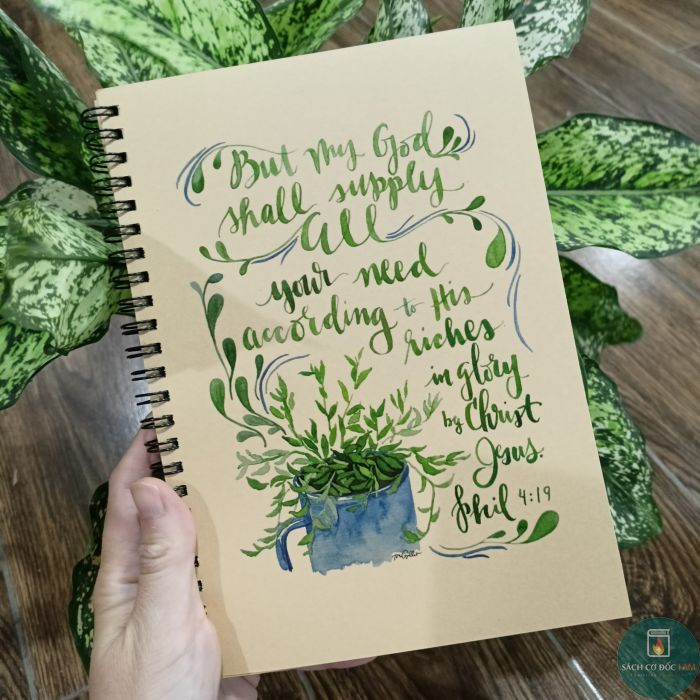 But My God
shall supply
All
your need
according to His
riches
in glory
by Christ
Jesus.
Phil 4:19
SÁCH CƠ ĐỐC LAM